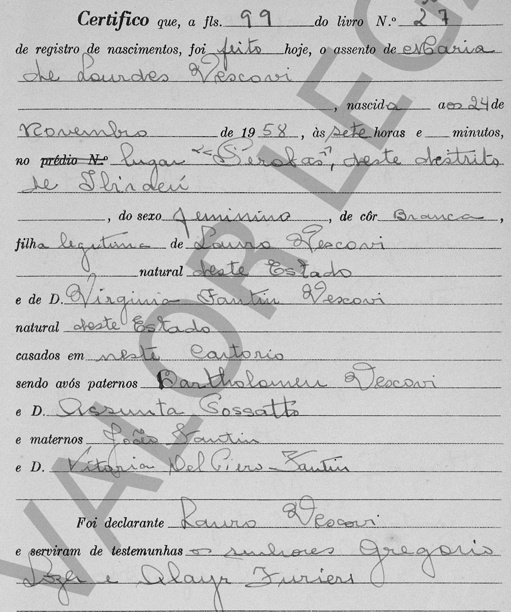 Certifico que, a fls. 99 do livro N.º 27
de registro de nascimentos, foi feito hoje, o assento de Maria
de Lourdes Vescovi
, nascida aos 24 de
Novembro de 1958, às sete horas e minutos,
no prédio N.º lugar "Perobas", deste distrito
de Ibiraçú
, do sexo feminino, de côr Branca,
filha legitima de Lauro Vescovi
natural deste Estado
e de D. Virginia Fantin Vescovi
natural deste Estado
casados em neste Cartorio
sendo avós paternos Bartholomeu Vescovi
e D. Assunta Cossatto
e maternos João Fantin
e D. Vitoria Del Piero Fantin
Foi declarante Lauro Vescovi
e serviram de testemunhas os senhores Gregorio
e Alayr
VALOR LEG